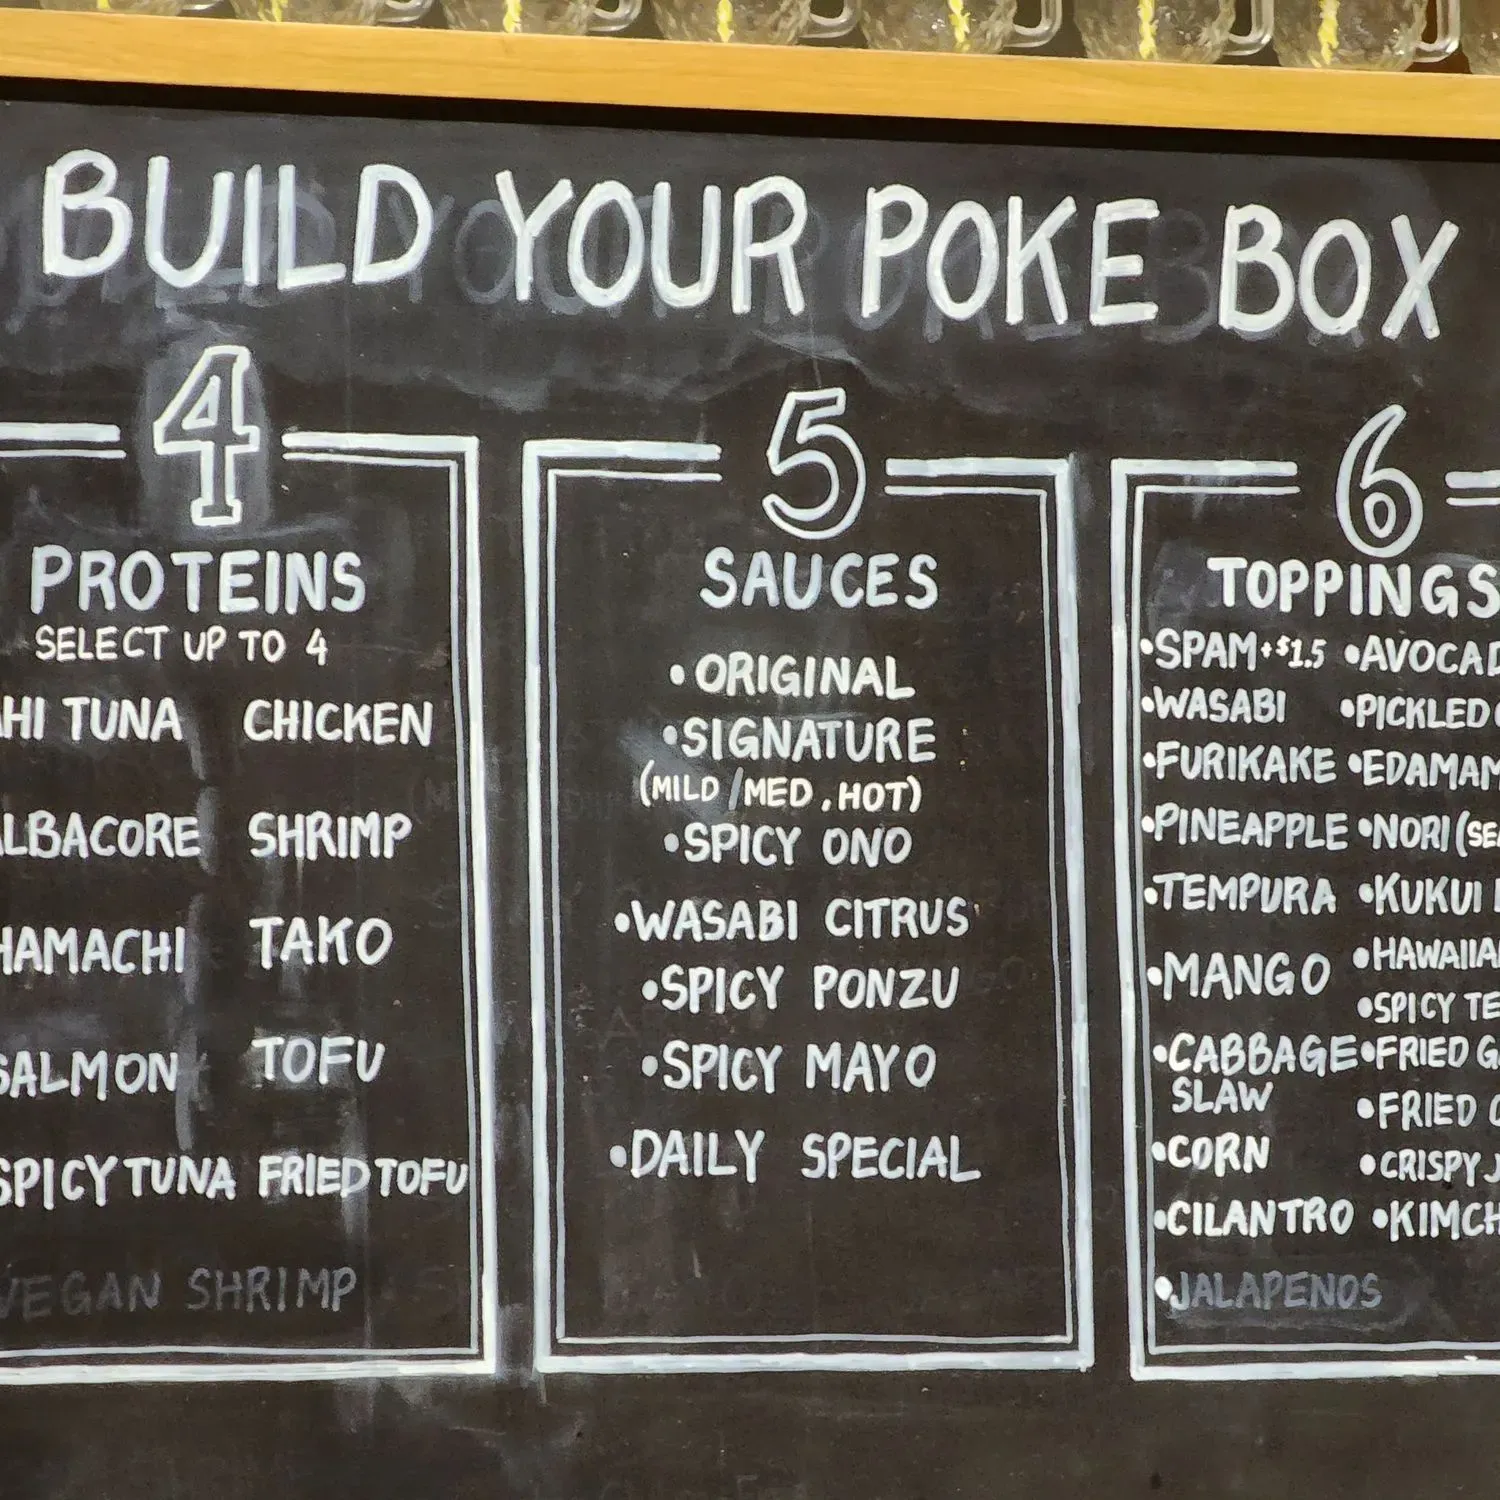 BUILD YOUR POKE BOX
4
PROTEINS
SELECT UP TO 4
HI TUNA CHICKEN
LBACORE SHRIMP
HAMACHI TAKO
SALMON TOFU
SPICY TUNA FRIED TOFU
VEGAN SHRIMP
5
SAUCES
•ORIGINAL
•SIGNATURE
(MILD/MED.HOT)
•SPICY ONO
•WASABI CITRUS
•SPICY PONZU
•SPICY MAYO
•DAILY SPECIAL
6
TOPPINGS
•SPAM+$1.5
•WASABI
•FURIKAKE
•PINEAPPLE
•TEMPURA
•MANGO
•CABBAGE
SLAW
•CORN
•CILANTRO
•JALAPENOS
•AVOCAD
•PICKLED
•EDAMAM
•NORI (SE
•KUKUI
•HAWAIIA
•SPICY TE
•FRIED G
•FRIED
•CRISPY J
•KIMCH